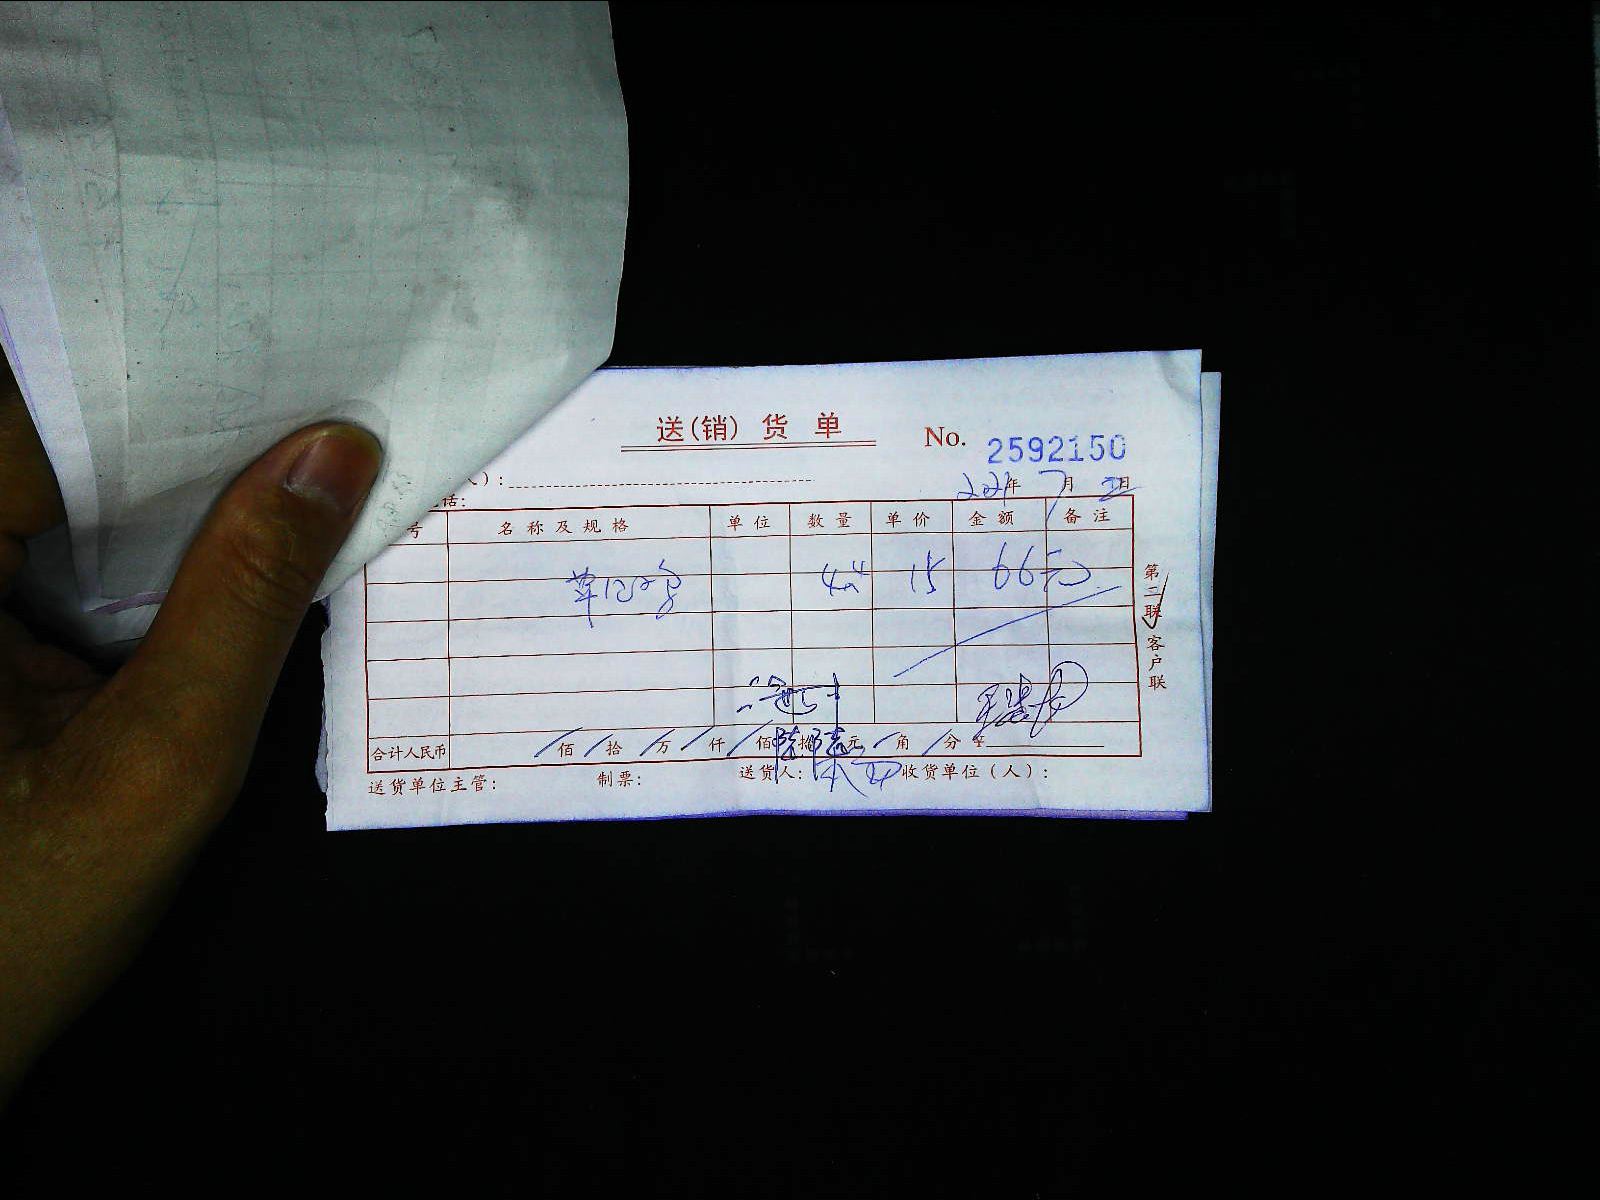 送(销) 货 单
No. 2592150
人):
话:
2021年 7月 日
号 名称及规格 单位 数量 单价 金额 备注
15 66元
合计人民币 佰 拾 万 仟 佰 陆 拾 陆 元 角 分
送货单位主管: 制票: 送货人: 收货单位(人):
第二联 客户联